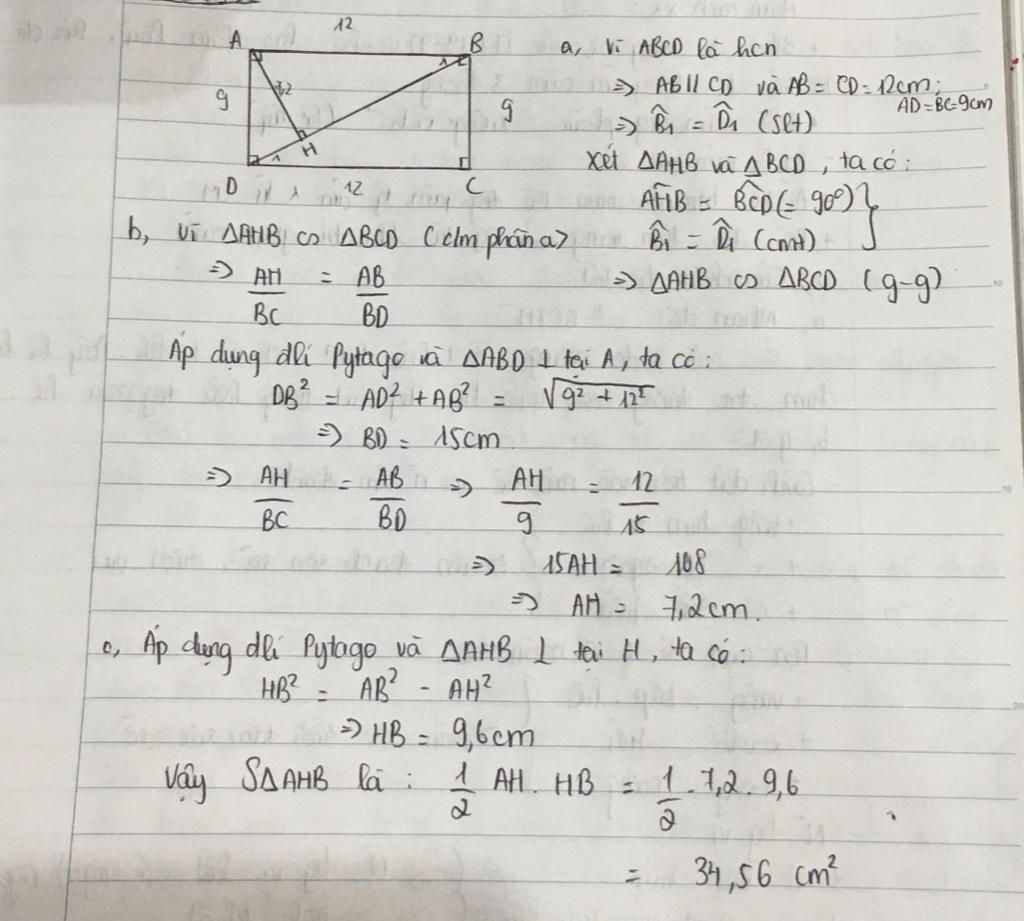 12
A
B
9
7,2
1
9
H
1
D
12
C
a, Vì ABCD là hcn
=> AB // CD và AB = CD = 12cm;
AD = BC = 9cm
=> B̂₁ = D̂₁ (SLT)
Xét ΔAHB và ΔBCD, ta có:
AĤB = BĈD (= 90°) }
B̂₁ = D̂₁ (cmt)
=> ΔAHB ∽ ΔBCD (g-g)
b, Vì ΔAHB ∽ ΔBCD (c/m phần a)
=> AH/BC = AB/BD
Áp dụng đlí Pytago và ΔABD ⊥ tại A, ta có:
DB² = AD² + AB² = √(9² + 12²)
=> BD = 15cm
=> AH/BC = AB/BD => AH/9 = 12/15
=> 15AH = 108
=> AH = 7,2cm.
c, Áp dụng đlí Pytago và ΔAHB ⊥ tại H, ta có:
HB² = AB² - AH²
=> HB = 9,6cm
Vậy SΔAHB là : 1/2 AH. HB = 1/2 . 7,2 . 9,6
= 34,56 cm²